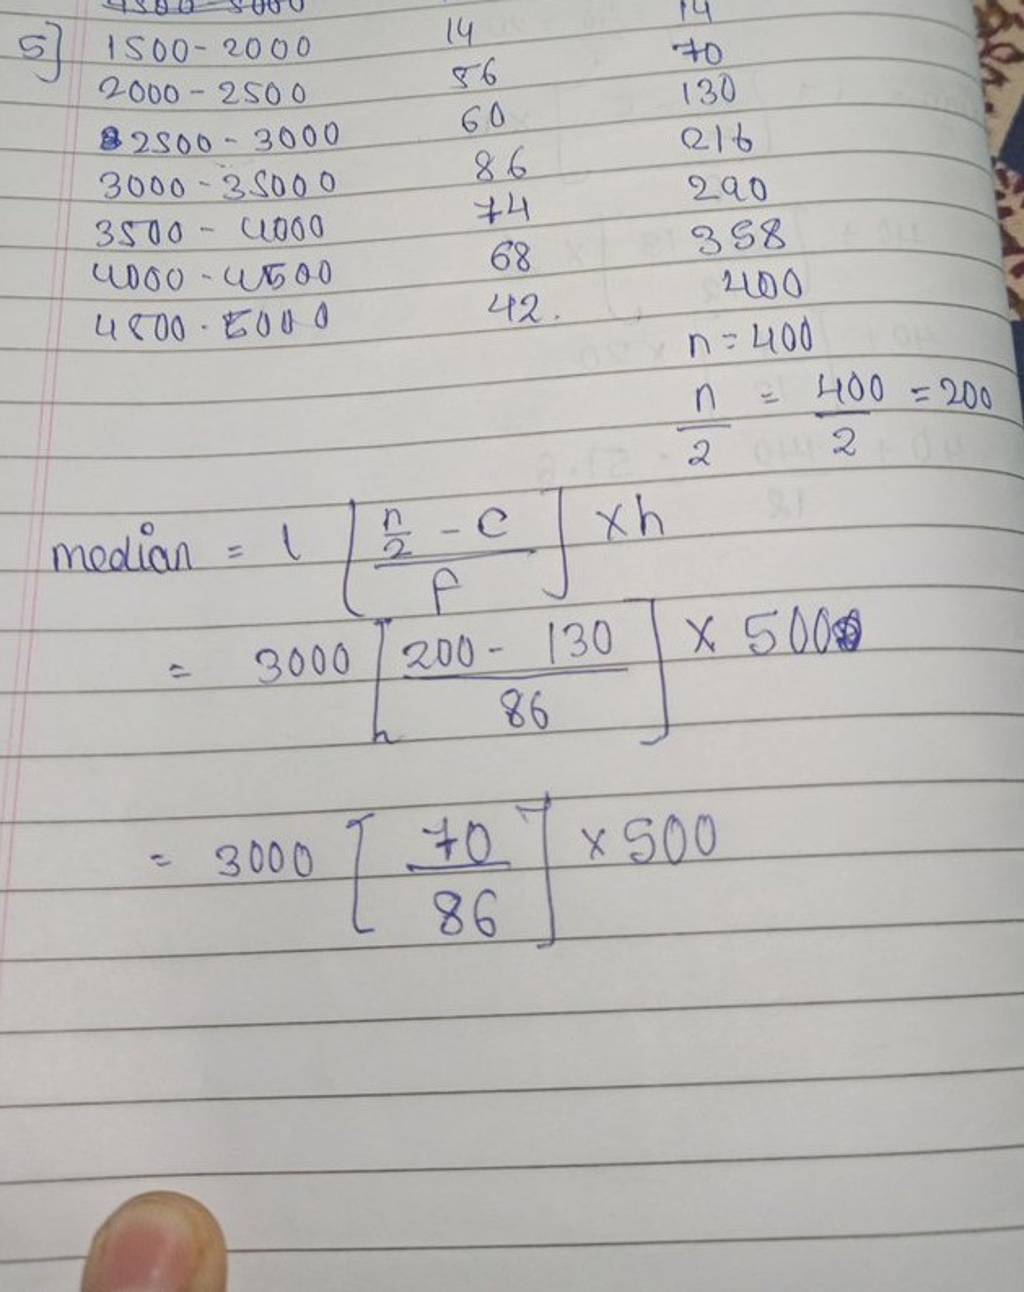 4500-5000 14
5] 1500-2000 14 70
2000-2500 56 130
2500-3000 60 216
3000-35000 86 290
3500-4000 74 358
4000-4500 68 400
4500-5000 42.
n = 400
n/2 = 400/2 = 200
median = l [(n/2 - c)/f] × h
= 3000 [(200 - 130)/86] × 500
= 3000 [70/86] × 500